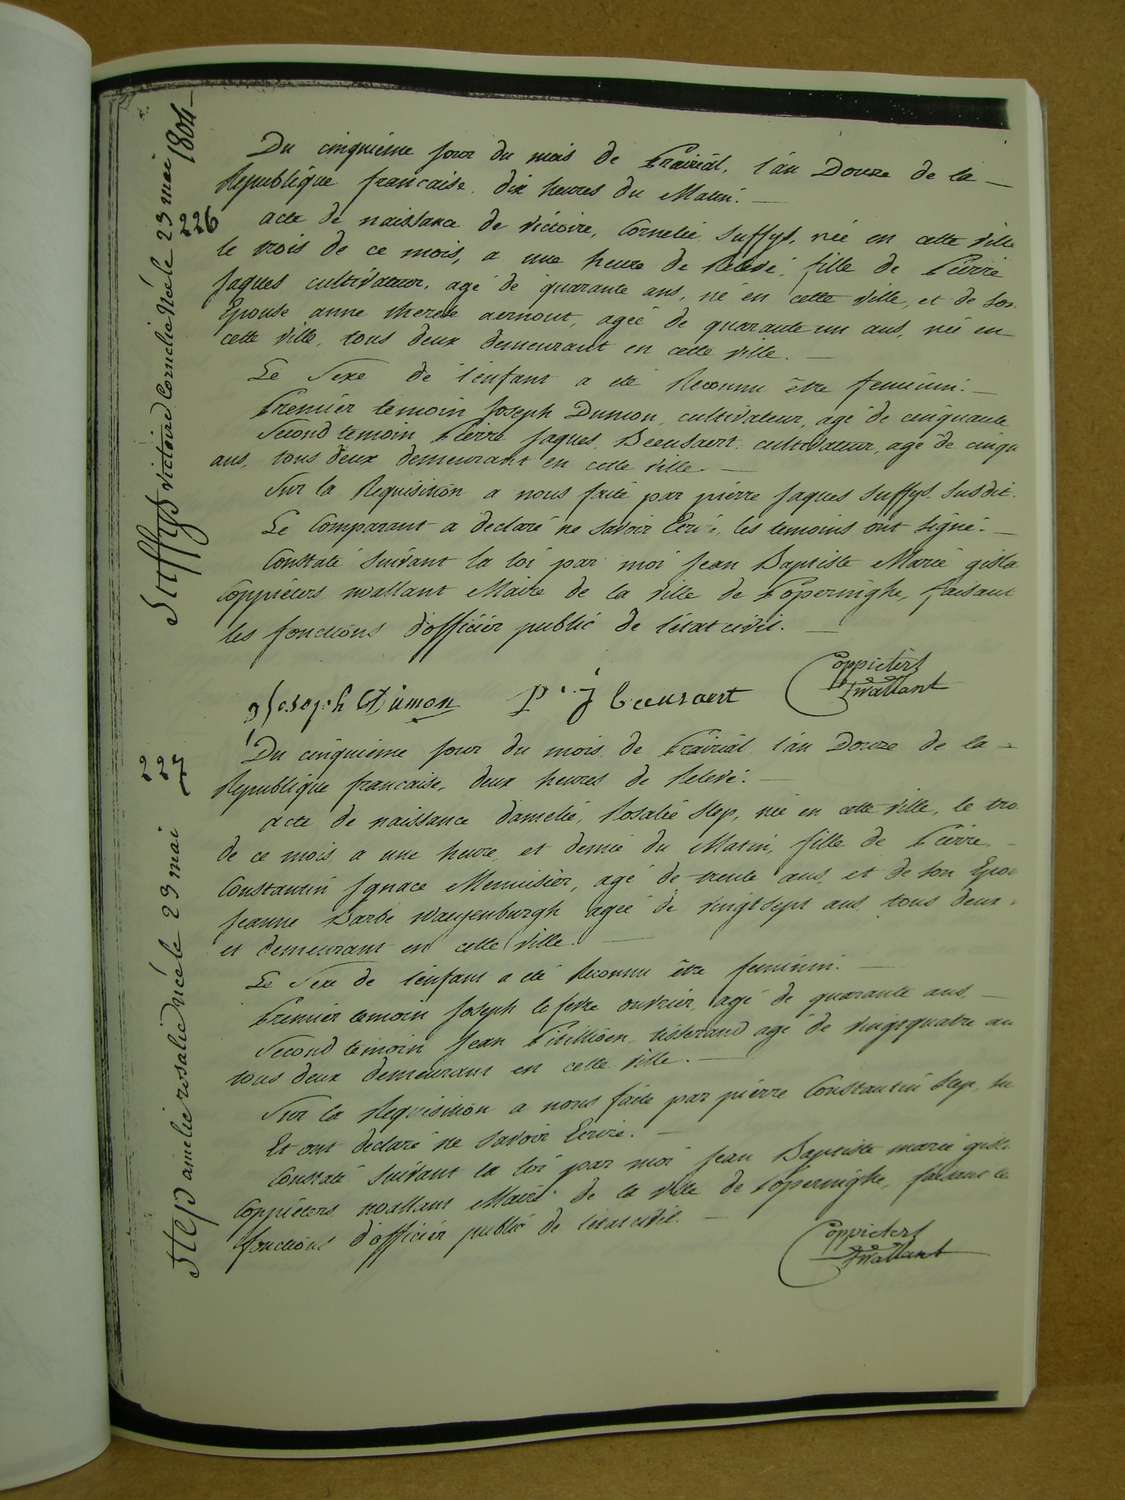 Suffys victoire Cornelie Née le 23 mai 1804
226
Du cinquième jour du mois de Prairial, l'an Douze de la
République française, dix heures du Matin.
acte de naissance de victoire, Cornelie Suffys, née en cette ville
le trois de ce mois, a une heure de Relevé, fille de Pierre
Jaques cultivateur, agé de quarante ans, né en cette ville, et de son
Epouse anne therese aernout, agée de quarante un ans, née en
cette ville, tous deux demeurant en cette ville.
Le Sexe de l'enfant a été Reconnu être feminin.
Premier temoin Joseph Dumon, cultivateur, agé de cinquante
Second temoin Pierre Jaques Beeusaert cultivateur, agé de cinqu
ans, tous deux demeurant en cette ville.
Sur la Requisition a nous faite par pierre Jaques Suffys susdit.
Le Comparant a declaré ne savoir Ecri, les temoins ont signé.
Constaté suivant la loi par moi Jean Baptiste Marie gisla
Coppieters wallant Maire de la ville de Poperinghe, faisant
les fonctions d'officier public de l'état civil.
Joseph Dumon P. J beeusaert Coppieters
Twallant
Step amelie rosalie née le 23 mai
227
Du cinquième jour du mois de Prairial l'an Douze de la
République française, deux heures de Relevé.
Acte de naissance d'amelie, Rosalie Step, née en cette ville, le tro
de ce mois, a une heure et demie du Matin, fille de Pierre
Constantin Ignace Menuisier, agé de trente ans, et de son Epou
Jeanne Barbe waeyenburgh agée de vingt sept ans, tous deux
et demeurant en cette ville.
Le Sexe de l'enfant a été Reconnu être feminin.
Premier temoin Joseph le febre ouvrier, agé de quarante ans,
Second temoin Jean tisserand agé de vingt quatre an
tous deux demeurant en cette ville.
Sur la Requisition a nous faite par pierre Constantin Step, su
Et ont declaré ne savoir Ecrire.
Constaté suivant la loi par moi Jean Baptiste marie gisle
Coppieters wallant Maire de la ville de Poperinghe, faisant le
fonctions d'officier public de l'état civil.
Coppieters
Twallant